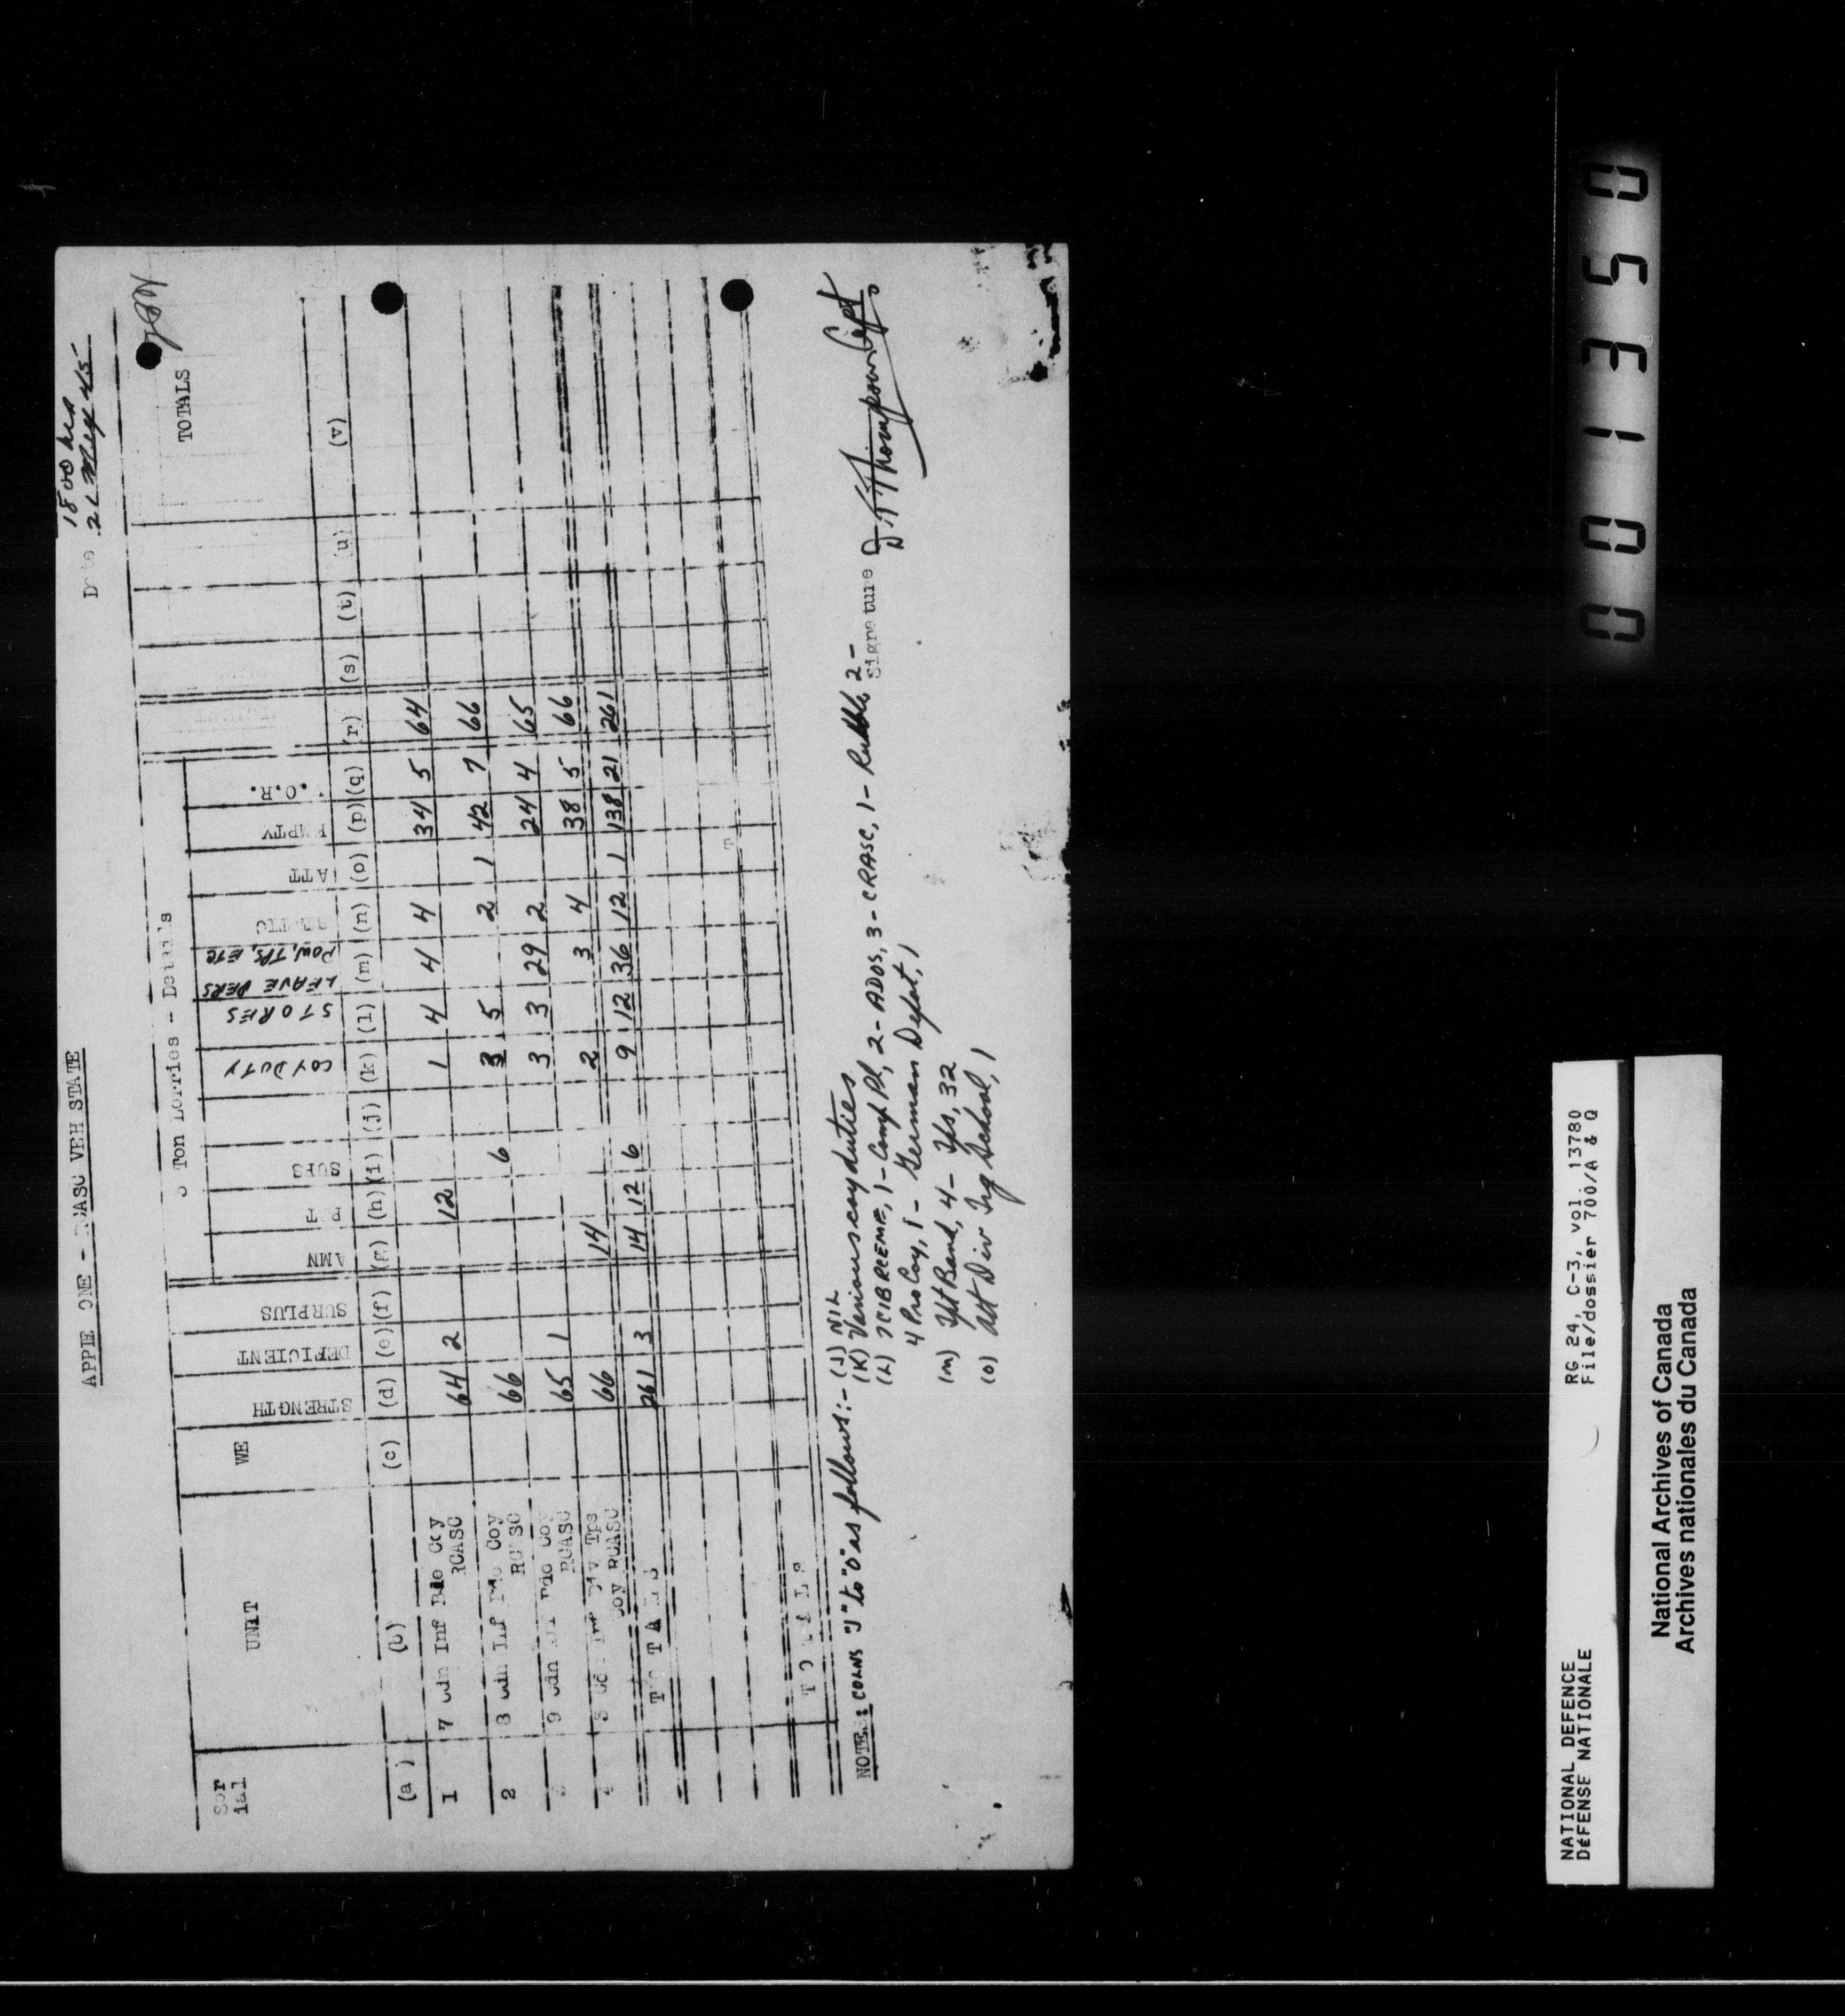 APPLE ONE - RCASC VEH STATE
1800 hrs
Date 21 May 45
3 Ton Lorries - Details
TOTALS
Ser ial UNIT WE STRENGTH DEFICIENT SURPLUS AMN PET SUPS COY DUTY STORES LEAVE PERS POW, TPS, ETC STATIC ATT EMPTY V.O.R.
(a) (b) (c) (d) (e) (f) (g) (h) (i) (j) (k) (l) (m) (n) (o) (p) (q) (r) (s) (t) (u) (v)
1 7 Cdn Inf Bde Coy RCASC 64 2 12 1 4 4 4 34 5 64
2 8 Cdn Inf Bde Coy RCASC 66 6 3 5 2 1 42 7 66
9 Cdn Inf Bde Coy RCASC 65 1 3 3 29 2 24 4 65
3 Cdn Inf Div Tps Coy RCASC 66 14 2 3 4 38 5 66
TOTALS 261 3 14 12 6 9 12 36 12 1 138 21 261
TOTALS
NOTE: COLNS "J" to "O" as follows:- (J) NIL
(K) Various coy duties
(L) 7CIBREEME, 1 - Comp Pl, 2 - ADOS, 3 - CRASC, 1 - Rubble 2 -
4 Pro Coy, 1 - German Depot, 1
(M) Ypt Band, 4 - Tps, 32
(O) Att Div Trg School, 1
Signature Thompson Capt.
001350
NATIONAL DEFENCE RG 24, C-3, vol. 13780
DÉFENSE NATIONALE File/dossier 700/A & Q
National Archives of Canada
Archives nationales du Canada